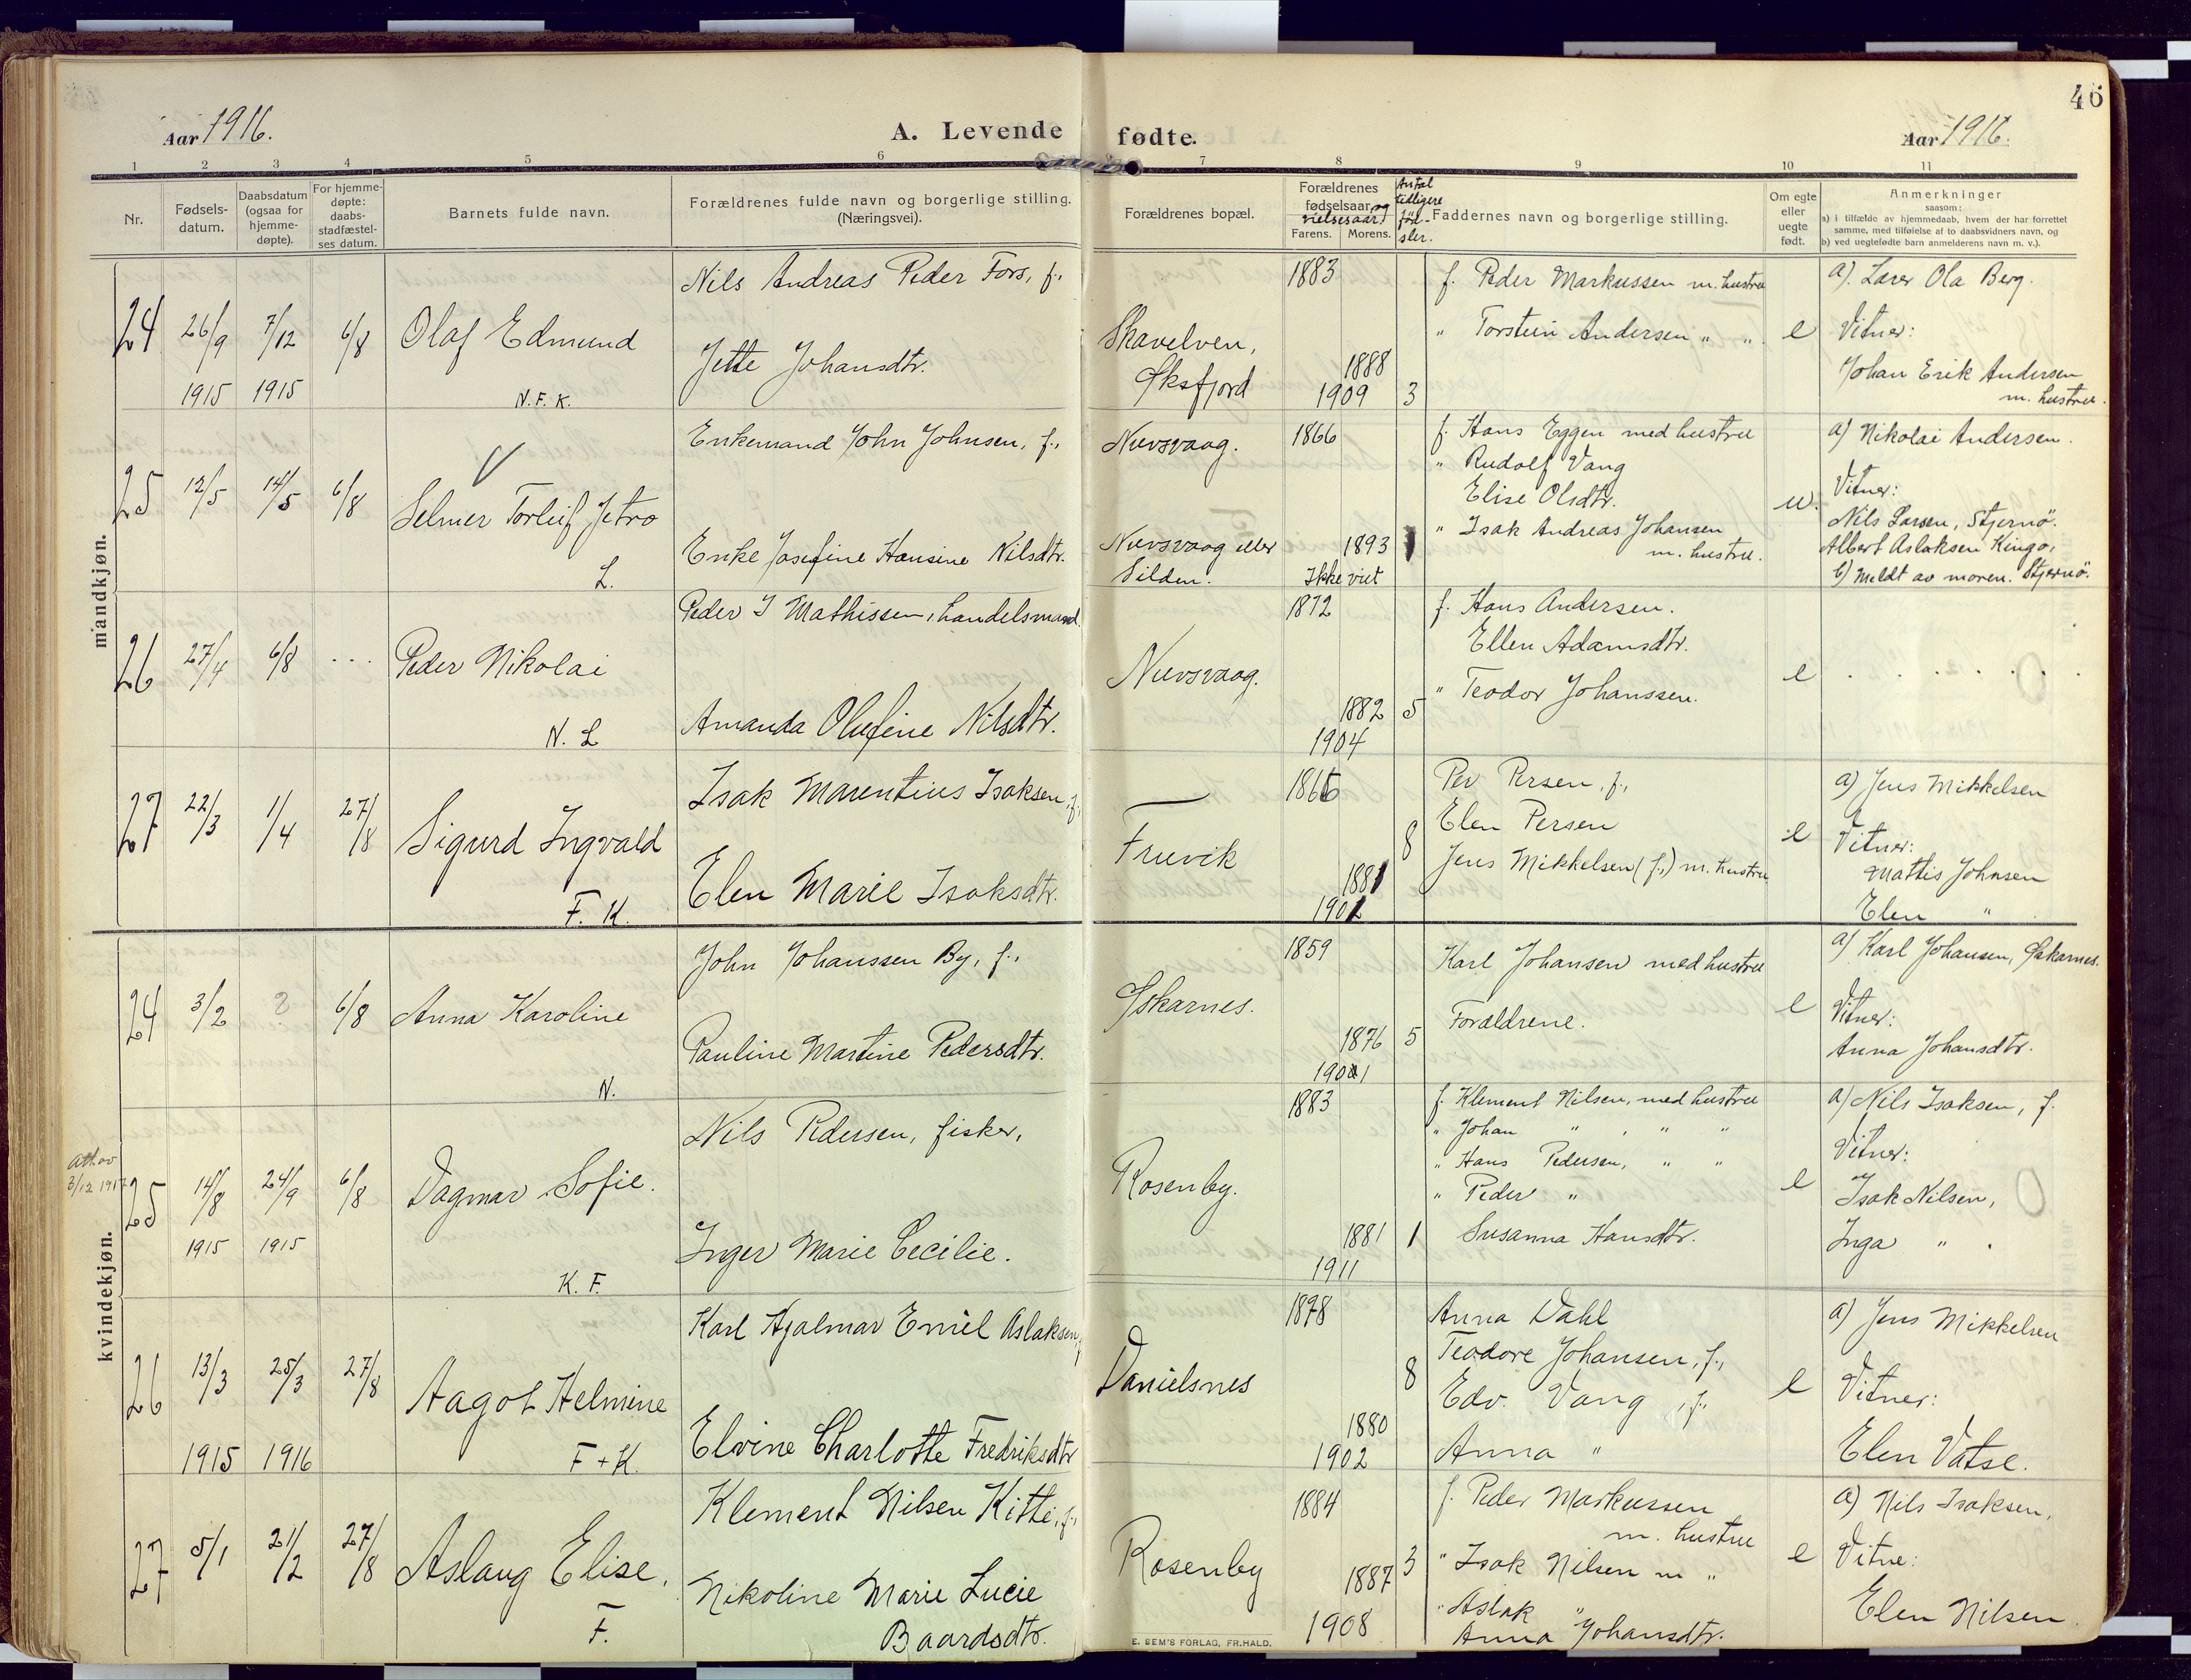 46
Aar 1916.
A. Levende fødte.
Aar 1916.
1 2 3 4 5 6 7 8 9 10 11
Nr.
Fødsels-
datum.
Daabsdatum
(ogsaa for
hjemme-
døpte).
For hjemme-
døpte:
daabs-
stadfæstel-
ses datum.
Barnets fulde navn.
Forældrenes fulde navn og borgerlige stilling.
(Næringsvei).
Forældrenes bopæl.
Forældrenes
fødselsaar og
vielsesaar
Farens. Morens.
Antal
tidligere
fød-
sler.
Faddernes navn og borgerlige stilling.
Om egte
eller
uegte
født.
Anmerkninger
saasom:
a) i tilfælde av hjemmedaab, hvem der har forrettet
samme, med tilføielse af to daabsvidners navn, og
b) ved uegtefødte barn anmelderens navn m. v.).
mandkjøn.
24
26/9
1915
7/12
1915
6/8
Olaf Edmund
N. F. K.
Nils Andreas Peder Fors, f.,
Jette Johansdtr.
Skavelven,
Øksfjord
1883
1888
1909
3
f. Peder Markussen m. hustru
" Torstein Andersen " "
e
a). Lærer Ola Berg.
Vitner:
Johan Erik Andersen
m. hustru.
25
12/5
14/5
6/8
Selmer Torleif Jetro
L.
Enkemand John Johnsen, f.,
Enke Josefine Hansine Nilsdtr.
Nuvsvaag.
Nuvsvaag eller
Silden.
1866
1893
Ikke viet
1
f. Hans Eggen med hustru
" Rudolf Vang
Elise Olsdtr.
" Isak Andreas Johansen
m. hustru.
u.
a) Nikolai Andersen.
Vitner:
Nils Larsen, Stjernø.
Albert Aslaksen Kingo,
b) Meldt av moren. Stjernø.
26
27/4
6/8
. . .
Peder Nikolai
N. L
Peder J Mathissen, handelsmand.
Amanda Olufine Nilsdtr.
Nuvsvaag.
1872
1882
1904
5
f. Hans Andersen.
Ellen Adamsdtr.
" Teodor Johanssen.
e
27
22/3
1/4
27/8
Sigurd Ingvald
F. K.
Isak Marentius Isaksen, f.,
Elen Marie Isaksdtr.
Fruvik
1866
1881
1902
8
Per Persen, f.,
Elen Persen
Jens Mikkelsen (f.,) m. hustru
e
a) Jens Mikkelsen
Vitner:
Mattis Johnsen
Elen "
kvindekjøn.
24
3/2
?
6/8
Anna Karoline
N.
John Johanssen By, f.,
Pauline Martine Pedersdtr.
Øskarnes.
1859
1876
1901
5
Karl Johansen med hustru
Forældrene.
e
a) Karl Johansen, Øskarnes.
Vitner:
Anna Johansdtr.
Att. av
3/12 1917
25
14/8
1915
24/9
1915
6/8
Dagmar Sofie.
K. F.
Nils Pedersen, fisker,
Inger Marie Cecilie.
Rosenby.
1883
1881
1911
1
f. Klement Nilsen, med hustru
" Johan " , " "
" Hans Pedersen, " "
" Peder "
Susanna Hansdtr.
e
a) Nils Isaksen, f.
Vitner:
Isak Nilsen,
Inga " .
26
13/3
1915
25/3
1916
27/8
Aagot Helmine
F + K.
Karl Hjalmar Emil Aslaksen, f
Elvine Charlotte Fredriksdtr
Danielsnes
1878
1880
1902
8
Anna Dahl
Teodore Johansen, f.,
Edv. Vang, f.,
Anna "
e
a) Jens Mikkelsen
Vitner:
Elen Vatse.
27
5/1
21/2
27/8
Aslaug Elise.
F.
Klement Nilsen Kitti, f.,
Nikoline Marie Lucie
Baardsdtr.
Rosenby
1884
1887
1908
3
f. Peder Markussen
m. hustru
" Isak Nilsen m "
" Aslak "
Anna Johansdtr.
e
a) Nils Isaksen,
Vitne:
Elen Nilsen
E. SEM'S FORLAG, FR.HALD.